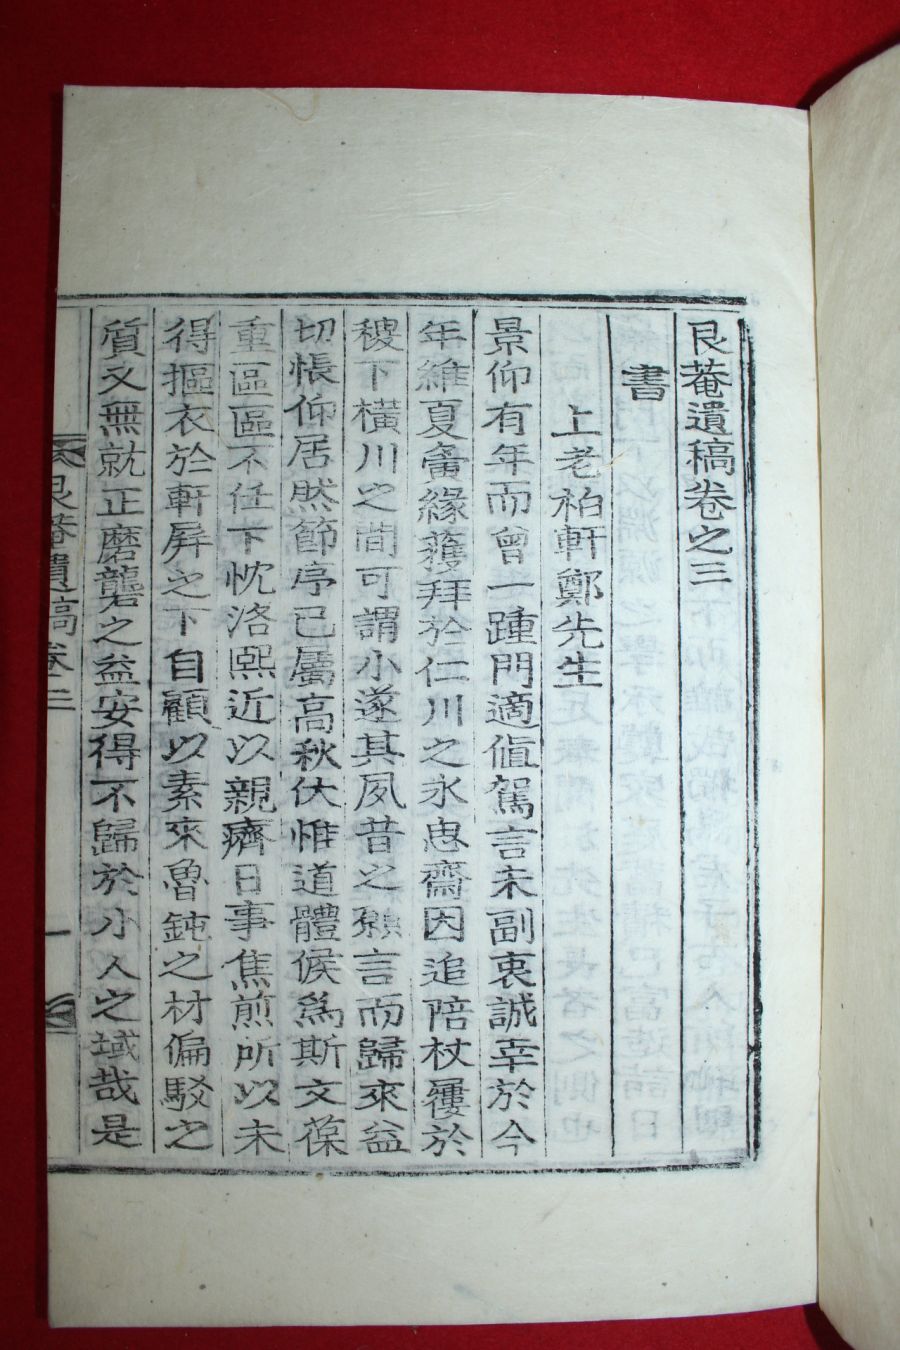 艮菴遺稿卷之三
書
上老柏軒鄭先生
景仰有年而曾一踵門適値駕言未副衷誠幸於今
年維夏夤緣獲拜於仁川之永思齋因追陪杖屨於
稷下橫川之間可謂小遂其夙昔之願言而歸來益
切悵仰居然節序已屬高秋伏惟道體候爲斯文葆
重區區不任下忱洛熙近以親癠日事焦煎所以未
得摳衣於軒屛之下自顧以素來魯鈍之材偏駁之
質又無就正磨礱之益安得不歸於小人之域哉是
艮菴遺稿卷三 一